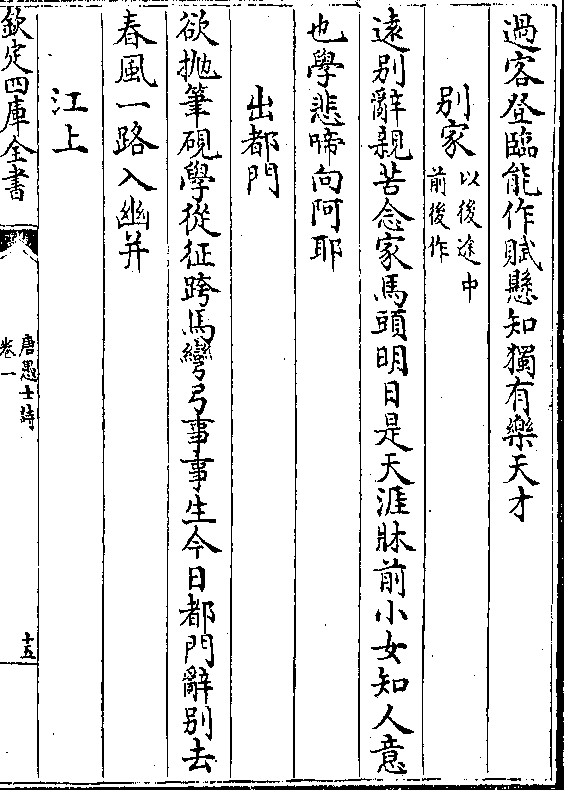 過客登臨能作賦懸知獨有樂天才
別家以後途中
前後作
遠别辭親苦念家馬頭明日是天涯牀前小女知人意
也學悲啼向阿耶
出都門
欲抛筆硯學從征跨馬彎弓事事生今日都門辭别去
春風一路入幽并
江上
欽定四庫全書
唐愚士詩
卷一
十五